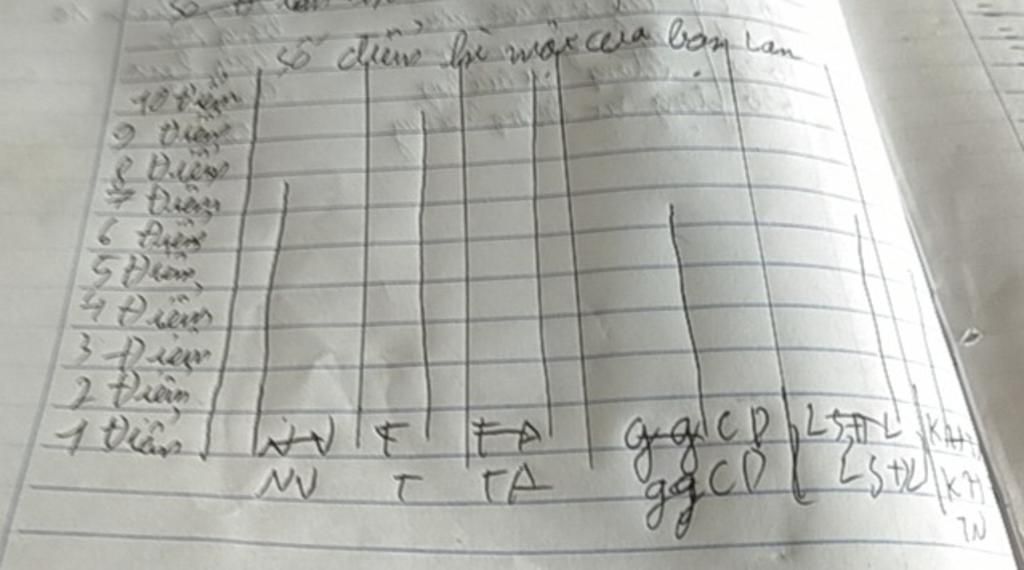 Số điểm bì mật của bạn Lan
10 Điểm
9 Điểm
8 Điểm
7 Điểm
6 Điểm
5 Điểm
4 Điểm
3 Điểm
2 Điểm
1 Điểm
NV T TA ggCD LS+ĐL KH
NV T TA ggCD LS+ĐL KH
TN